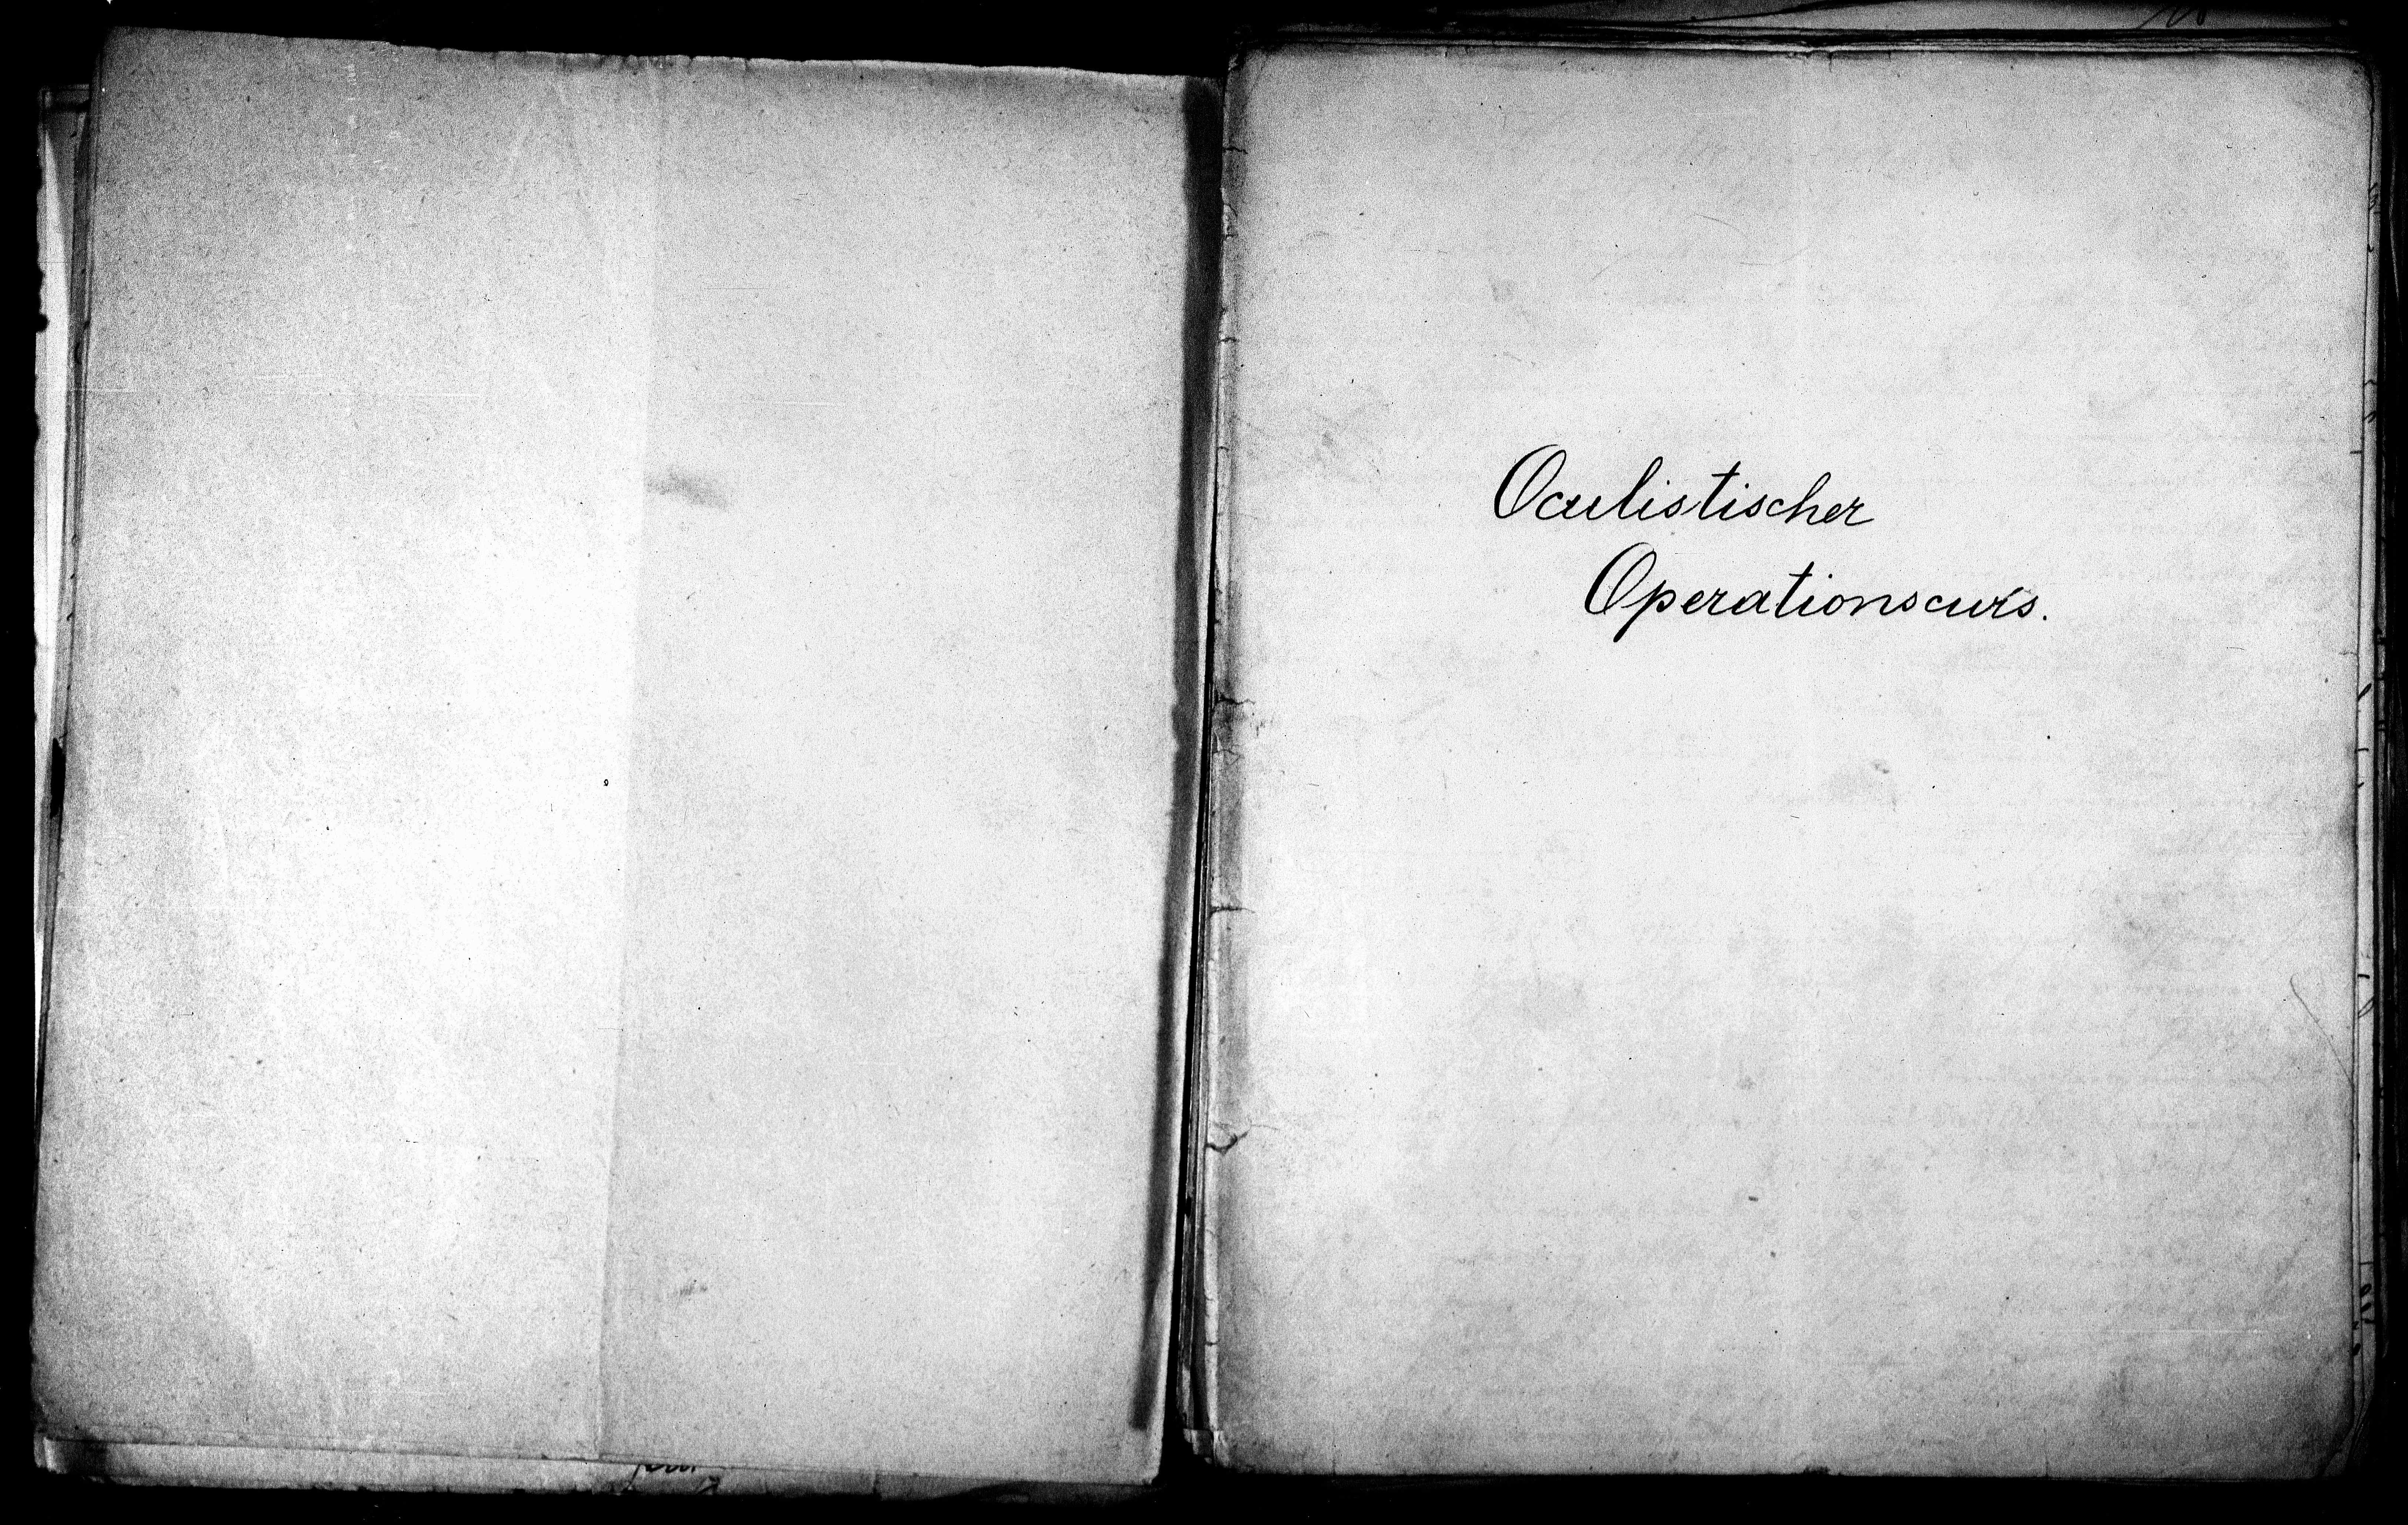 Oculistischer
Operationscurs.